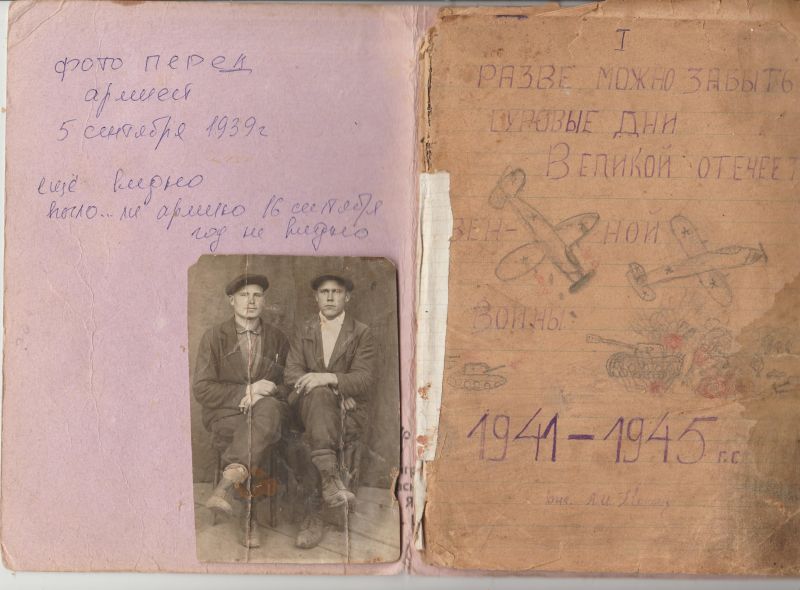 фото перед
армией
5 сентября 1939 г
ещё видно
было... не армию 16 сентября
год не видно
I
РАЗВЕ МОЖНО ЗАБЫТЬ
СУРОВЫЕ ДНИ
ВЕЛИКОЙ ОТЕЧЕСТ
ВЕН- НОЙ
ВОЙНЫ
1941-1945 г.г.